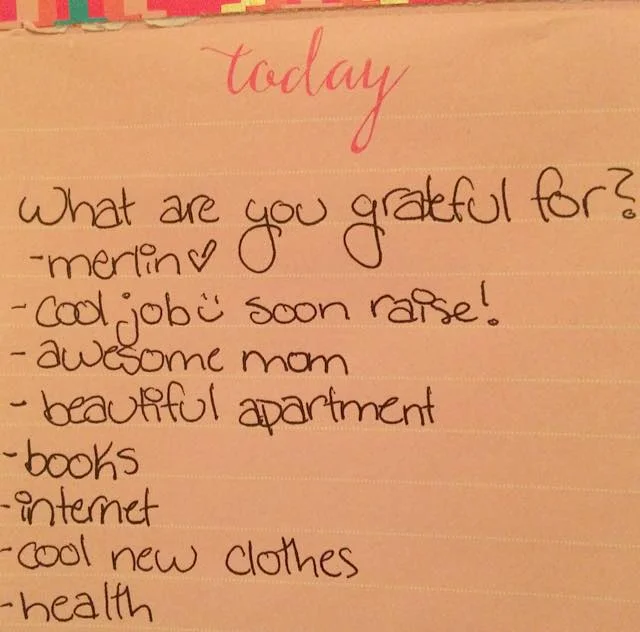 today
What are you grateful for?
-merlin♡
-cool job☺ soon raise!
-awesome mom
-beautiful apartment
-books
-internet
-cool new clothes
-health